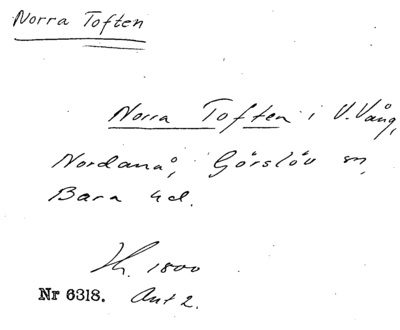 Norra Toften
Norra Toften i V. Vång,
Nordanå, Görslöv sn,
Bara hd.
Th. 1800
Nr 6318. Ant 2.